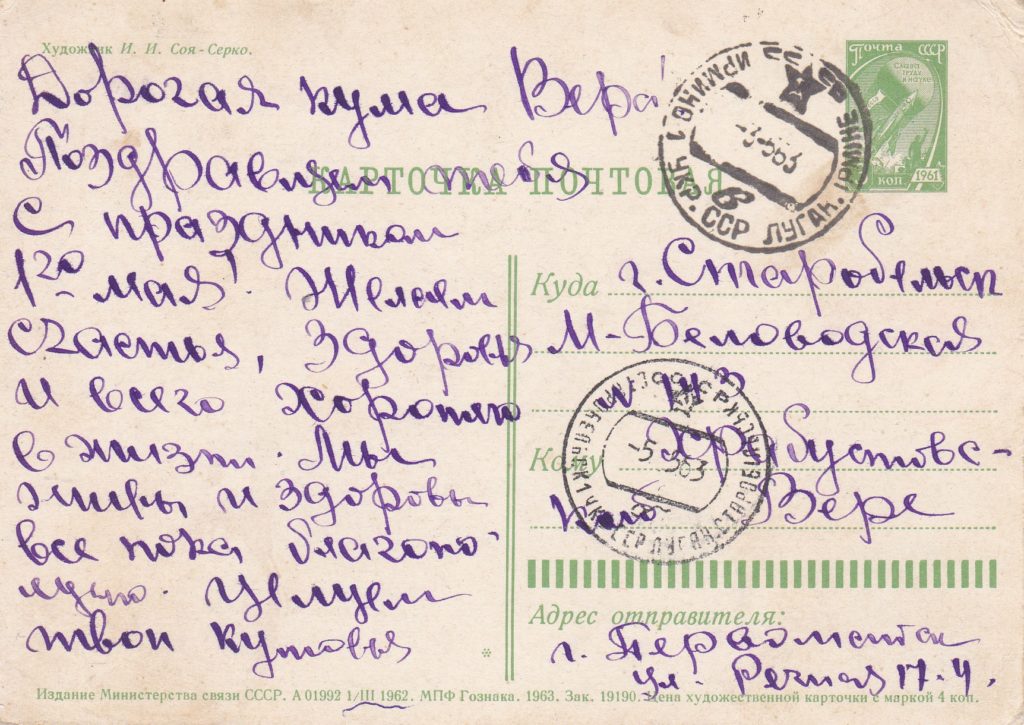 Художник И. И. Соя-Серко.
ПОЧТА СССР
СЛАВА
ТРУДУ
И НАУКЕ
КОП
1961
КАРТОЧКА ПОЧТОВАЯ
ИРМИНО 1 УКР. ССР ЛУГАН. ІРМІНЕ
-3-563
6
Дорогая кума Вера!
Поздравляем тебя
с праздником
1го мая! Желаем
счастья, здоровья
и всего хорошего
в жизни. Мы
живы и здоровы
все пока благопо-
лучно. Целуем
твои кумовья
Куда г. Старобельск
М-Беловодская
-5-563
Кому Хрибустовс-
Вере
Адрес отправителя:
г. Первомайск
ул. Речная 17-4.
*
Издание Министерства связи СССР. А 01992 1/III 1962. МПФ Гознака. 1963. Зак. 19190. Цена художественной карточки с маркой 4 коп.